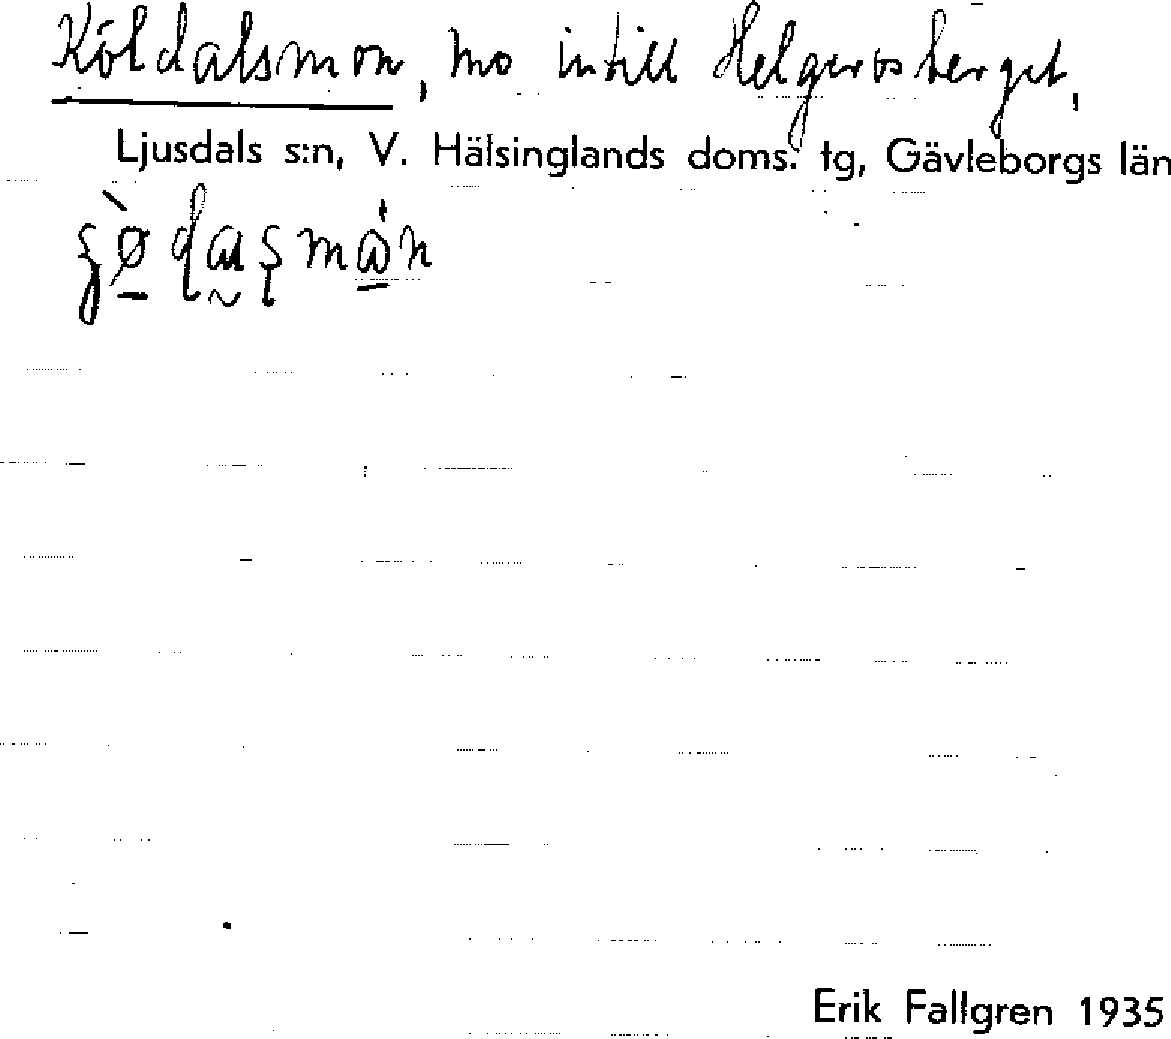 Köldalsmon, mo intill Helgerosberget,
Ljusdals s:n, V. Hälsinglands doms. tg, Gävleborgs län
Erik Fallgren 1935